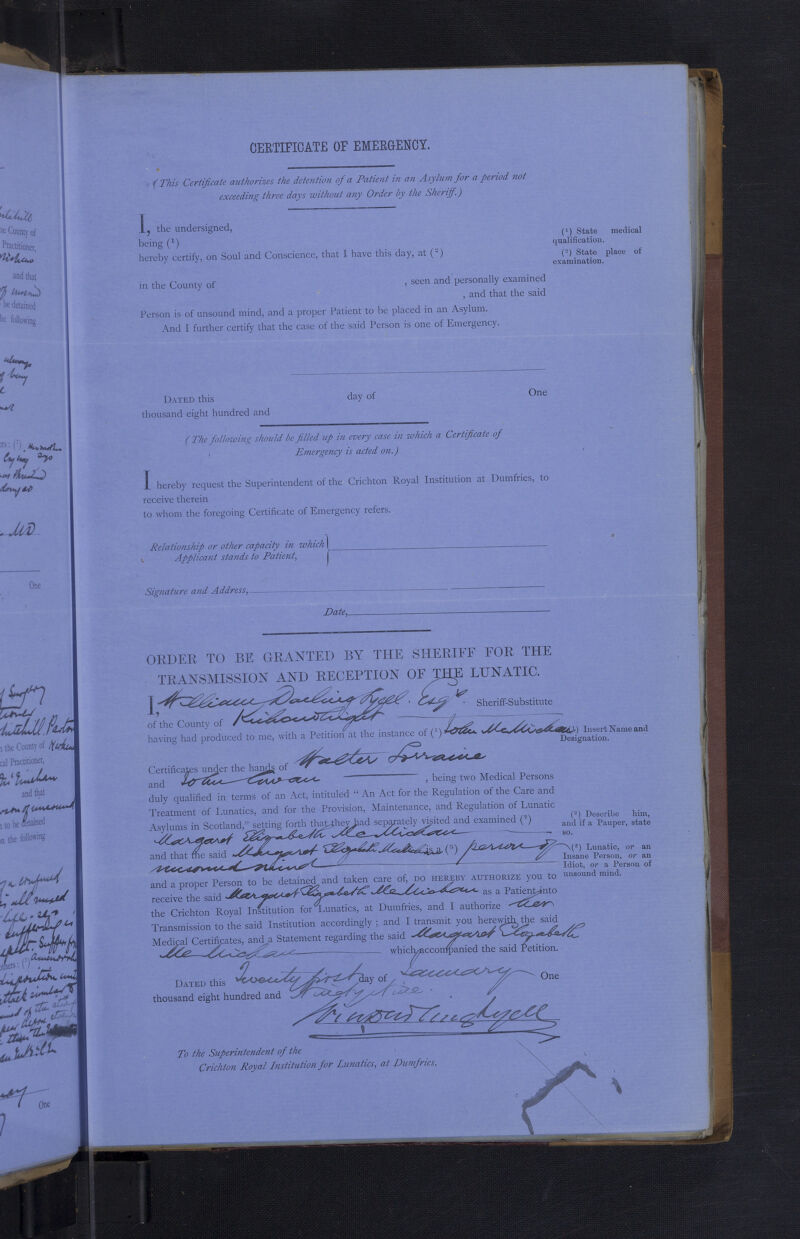 CERTIFICATE OF EMERGENCY.
(This Certificate authorizes the detention of a Patient in an Asylum for a period not
exceeding three days without any Order by the Sheriff.)
I, the undersigned,
being (¹)
hereby certify, on Soul and Conscience, that I have this day, at (²)
in the County of , seen and personally examined
, and that the said
Person is of unsound mind, and a proper Patient to be placed in an Asylum.
And I further certify that the case of the said Person is one of Emergency.
(¹) State medical
qualification.
(²) State place of
examination.
DATED this day of One
thousand eight hundred and
(The following should be filled up in every case in which a Certificate of
Emergency is acted on.)
I hereby request the Superintendent of the Crichton Royal Institution at Dumfries, to
receive therein
to whom the foregoing Certificate of Emergency refers.
Relationship or other capacity in which
Applicant stands to Patient,
Signature and Address,
Date,
ORDER TO BE GRANTED BY THE SHERIFF FOR THE
TRANSMISSION AND RECEPTION OF THE LUNATIC.
I, William Darling Lyell. Esqre. Sheriff-Substitute
of the County of Kirkcudbright
having had produced to me, with a Petition at the instance of (¹) John McMichan
(¹) Insert Name and
Designation.
Certificates under the hands of Walter Lorraine
and John Cowan , being two Medical Persons
duly qualified in terms of an Act, intituled “ An Act for the Regulation of the Care and
Treatment of Lunatics, and for the Provision, Maintenance, and Regulation of Lunatic
Asylums in Scotland,” setting forth that they had separately visited and examined (²)
Margaret Elizabeth McMichan
(²) Describe him,
and if a Pauper, state
so.
and that the said Margaret Elizabeth McMichan (³) person of
unsound mind
(³) Lunatic, or an
Insane Person, or an
Idiot, or a Person of
unsound mind.
and a proper Person to be detained and taken care of, DO HEREBY AUTHORIZE you to
receive the said Margaret Elizabeth McMichan as a Patient into
the Crichton Royal Institution for Lunatics, at Dumfries, and I authorize her
Transmission to the said Institution accordingly ; and I transmit you herewith the said
Medical Certificates, and a Statement regarding the said Margaret Elizabeth
McMichan which accompanied the said Petition.
DATED this Twenty first day of January One
thousand eight hundred and Ninety nine.
To the Superintendent of the
Crichton Royal Institution for Lunatics, at Dumfries.